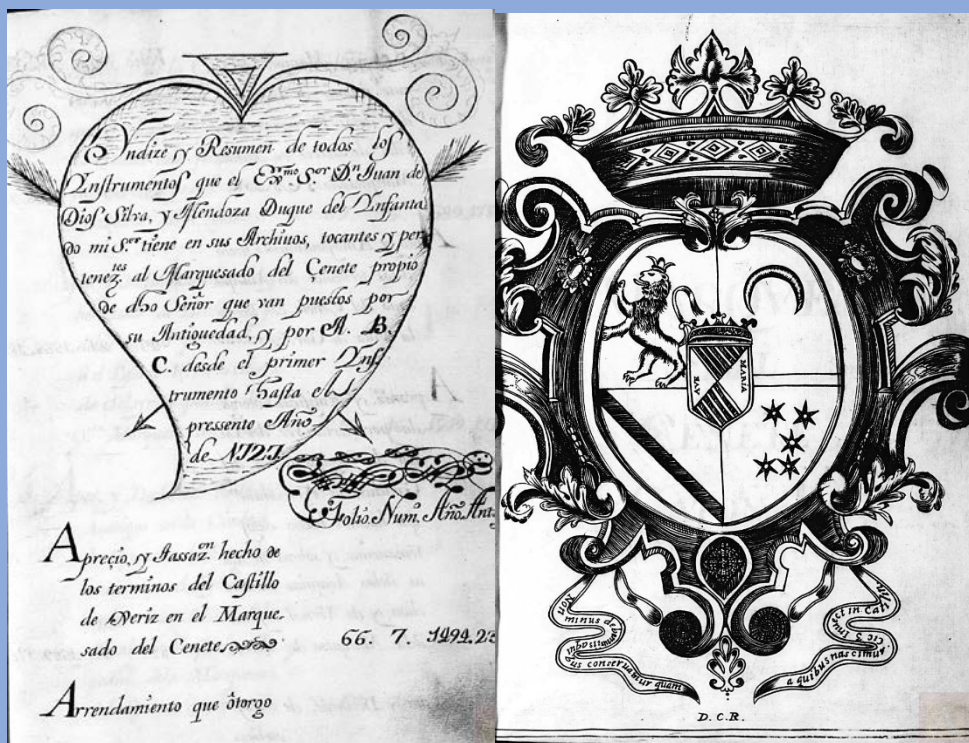 Yndize y Resumen de todos los
Ynstrumentos que el Ex.mo S.or D.n Juan de
Dios Silva, y Mendoza Duque del Ynfanta
do mi S.or tiene en sus Archivos, tocantes y per
tenez.tes al Marquesado del Cenete propio
de dho Señor que van puestos por
su Antiguedad, y por A. B.
C. desde el primer Yns
trumento hasta el
pressente Año
de
Folio. Num.o Año. Ant
Aprecio, y Tassaz.on hecho de
los terminos del Castillo
de en el Marque-
sado del Cenete. 66. 7. 1494. 23
Arrendamiento que ôtorgo
AVE
MARIA
Non
minus
us conservamur quam
a quibus nascimur.
Cic 3
in Cati
D. C. R.